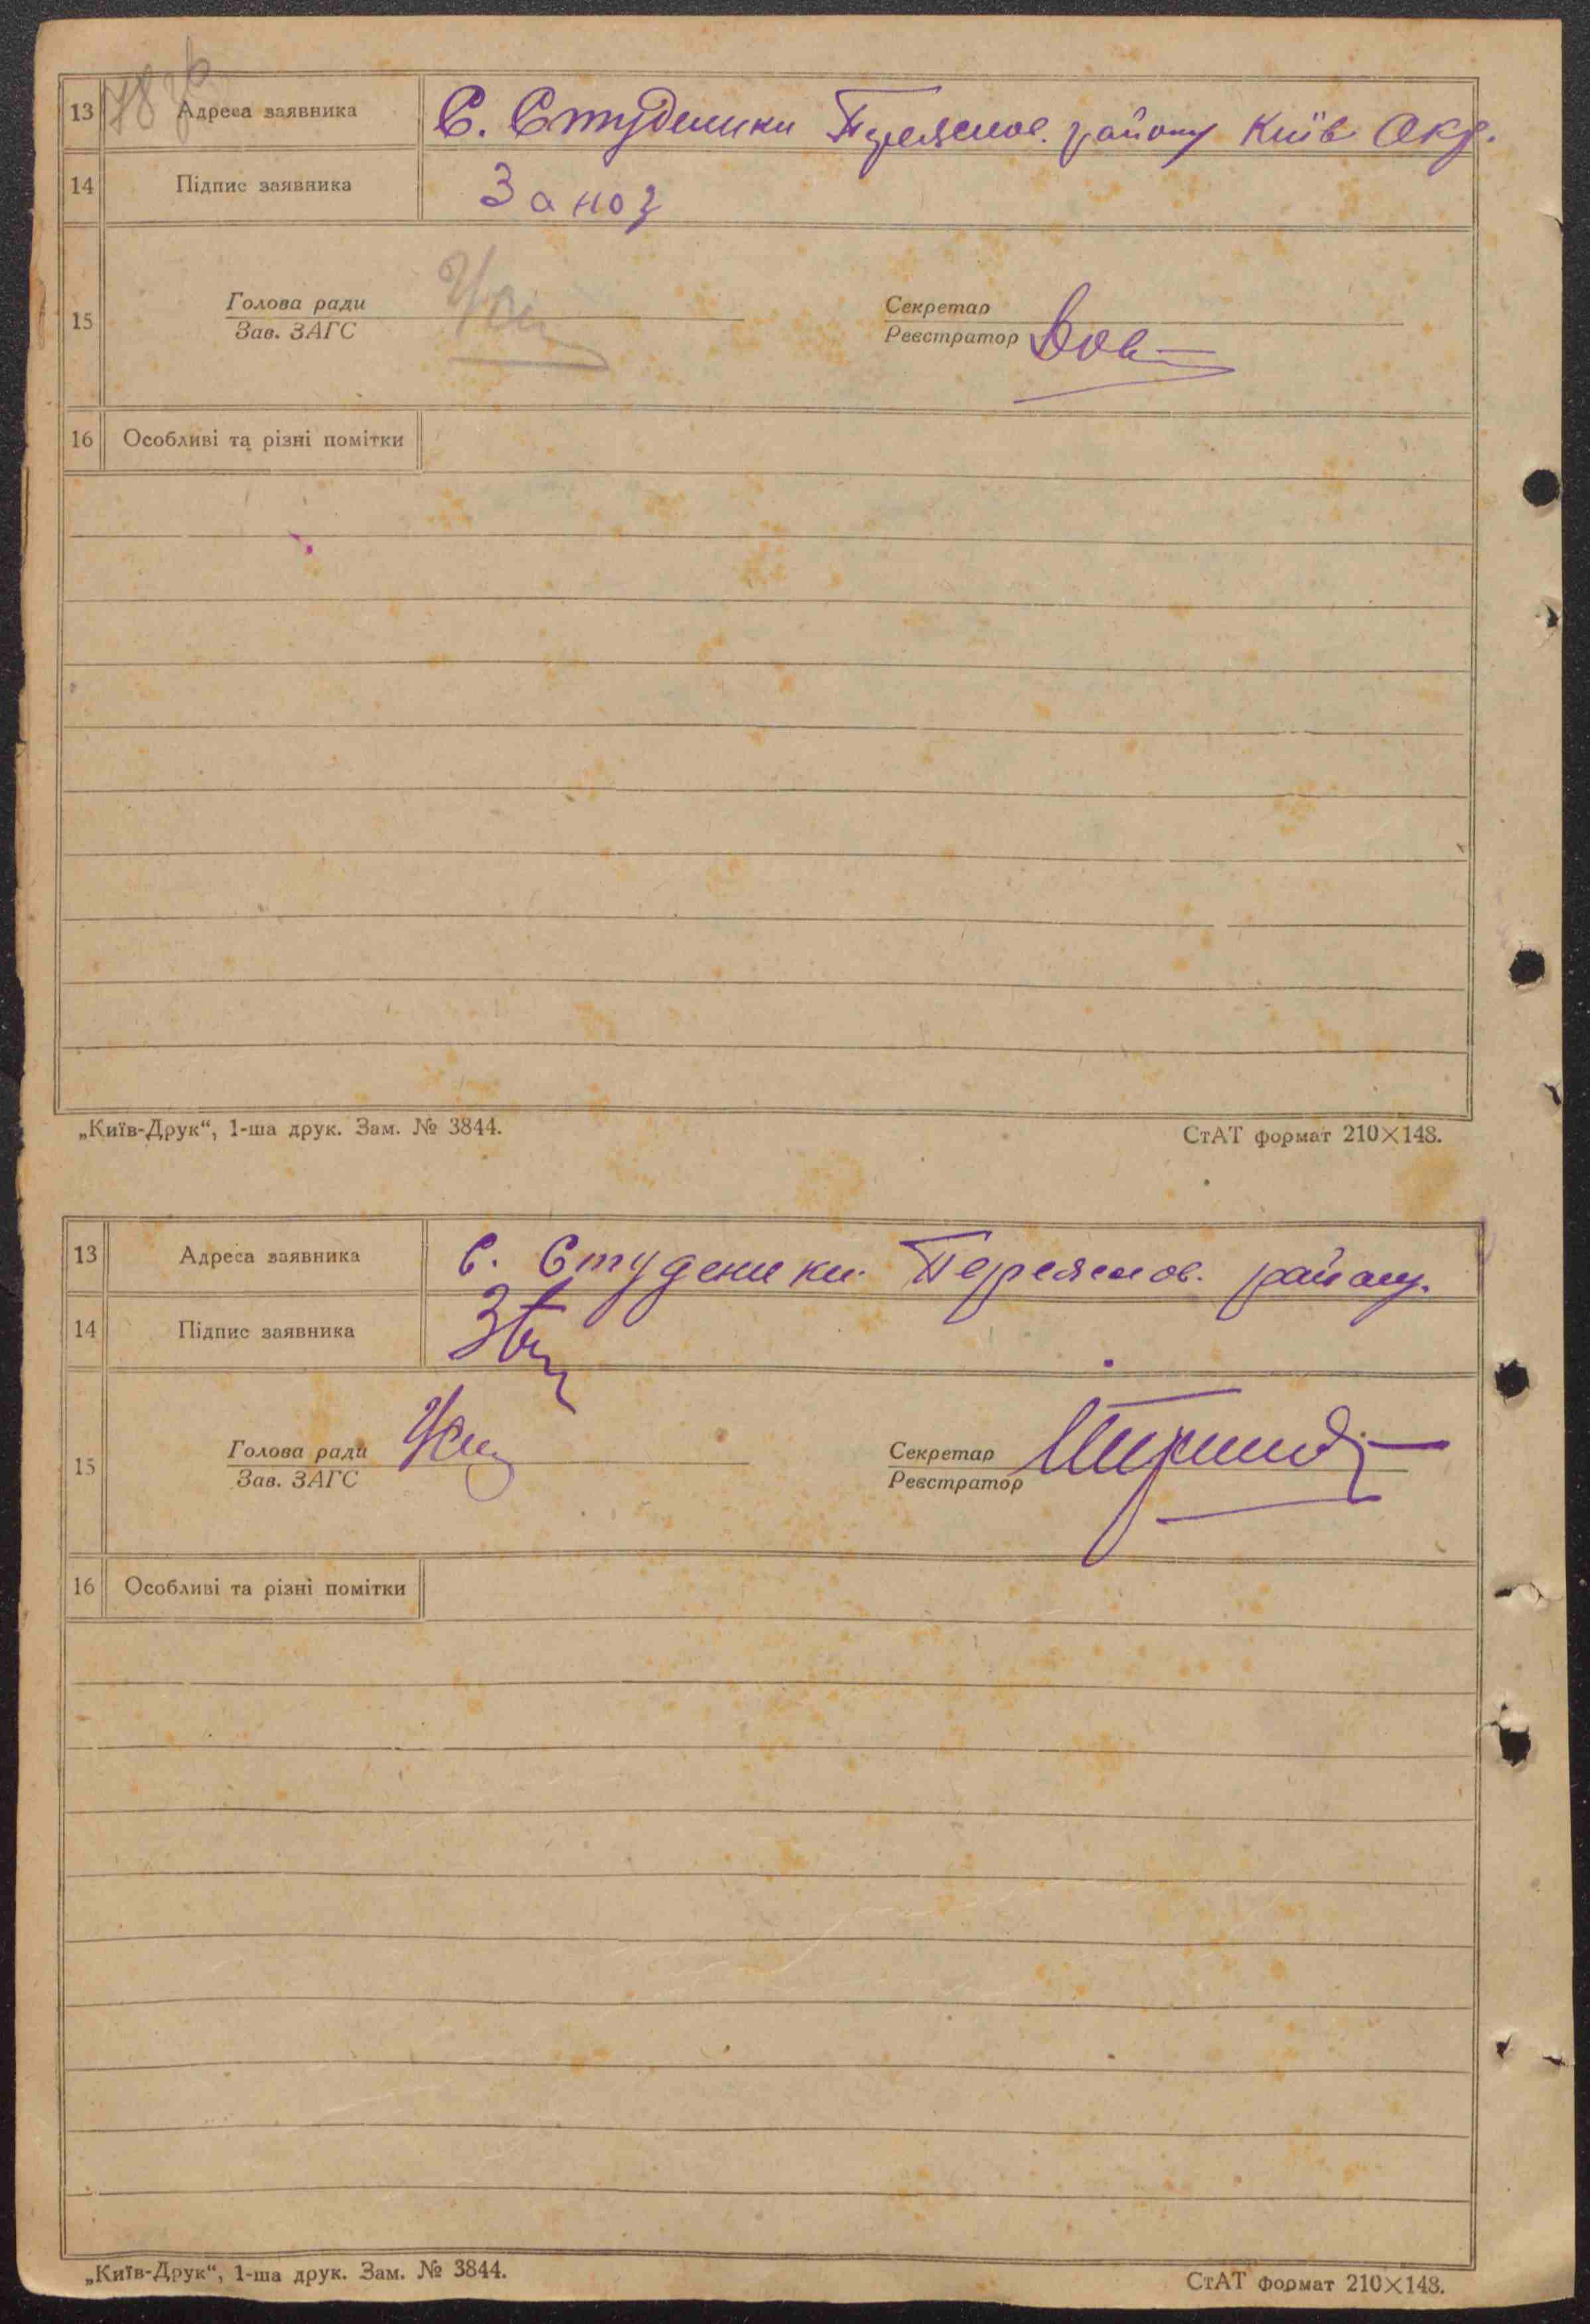 78 зв
13 Адреса заявника С. Студеники Переяслов. району Київ Окр.
14 Підпис заявника Заноз
Голова ради Секретар
15
Зав. ЗАГС Реєстратор
16 Особливі та різні помітки
„Київ-Друк“, 1-ша друк. Зам. № 3844. СтАТ формат 210×148.
13 Адреса заявника С. Студеники Переяслов. району.
14 Підпис заявника
Голова ради Секретар
15
Зав. ЗАГС Реєстратор
16 Особливі та різні помітки
„Київ-Друк“, 1-ша друк. Зам. № 3844. СтАТ формат 210×148.